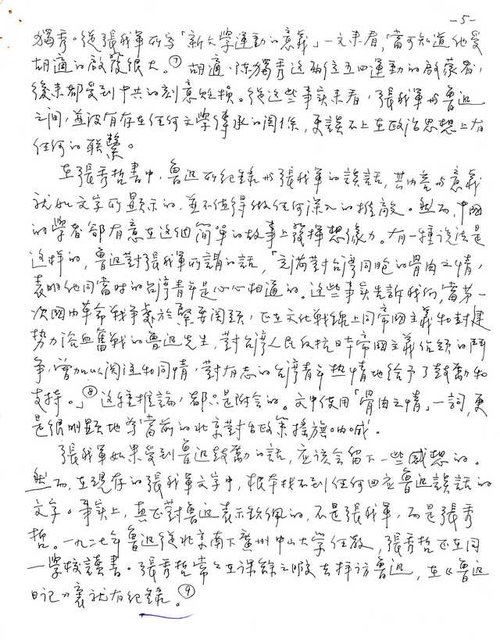 -5-
獨秀。從張我軍所寫「新文學運動的意義」一文來看,當可知道他受
胡適的啟發很大。⑦胡適、陳獨秀這兩位五四運動的啟蒙者,
後來都受到中共的刻意貶損。從這些事實來看,張我軍與魯迅
之間,並沒有存在任何文學傳承的關係,更談不上在政治思想上有
任何的聯繫。
在張秀哲書中,魯迅所紀錄與張我軍的談話,其內容與意義
就如文字所顯示的,並不值得做任何深入的推敲。然而,中國
的學者卻有意在這個簡單的故事上發揮想像力。有一種說法是
這樣的,魯迅對張我軍所講的話,「充滿對台灣同胞的骨肉之情,
表明他同當時的台灣青年是心心相通的。這些事實告訴我們,當第一
次國內革命戰爭處於緊要關頭,正在文化戰線上同帝國主義和封建
勢力浴血奮戰的魯迅先生,對台灣人民反抗日本帝國主義侵略的鬥
爭,曾加以關注和同情,對有志的台灣青年熱情地給予了鼓勵和
支持。」⑧這種推論,都只是附會的。文中使用「骨肉之情」一詞,更
是很明顯地等當前的北京對台政策搖旗吶喊。
張我軍如果受到魯迅鼓勵的話,應該會留下一些感想的。
然而,在現存的張我軍文字中,根本找不到任何回應魯迅談話的
文字。事實上,真正對魯迅表示欽佩的,不是張我軍,而是張秀
哲。一九二七年魯迅從北京南下廣州中山大學任教,張秀哲正在同
一學校讀書。張秀哲常常在課餘之暇去拜訪魯迅,在《魯迅
日記》裏就有紀錄。⑨